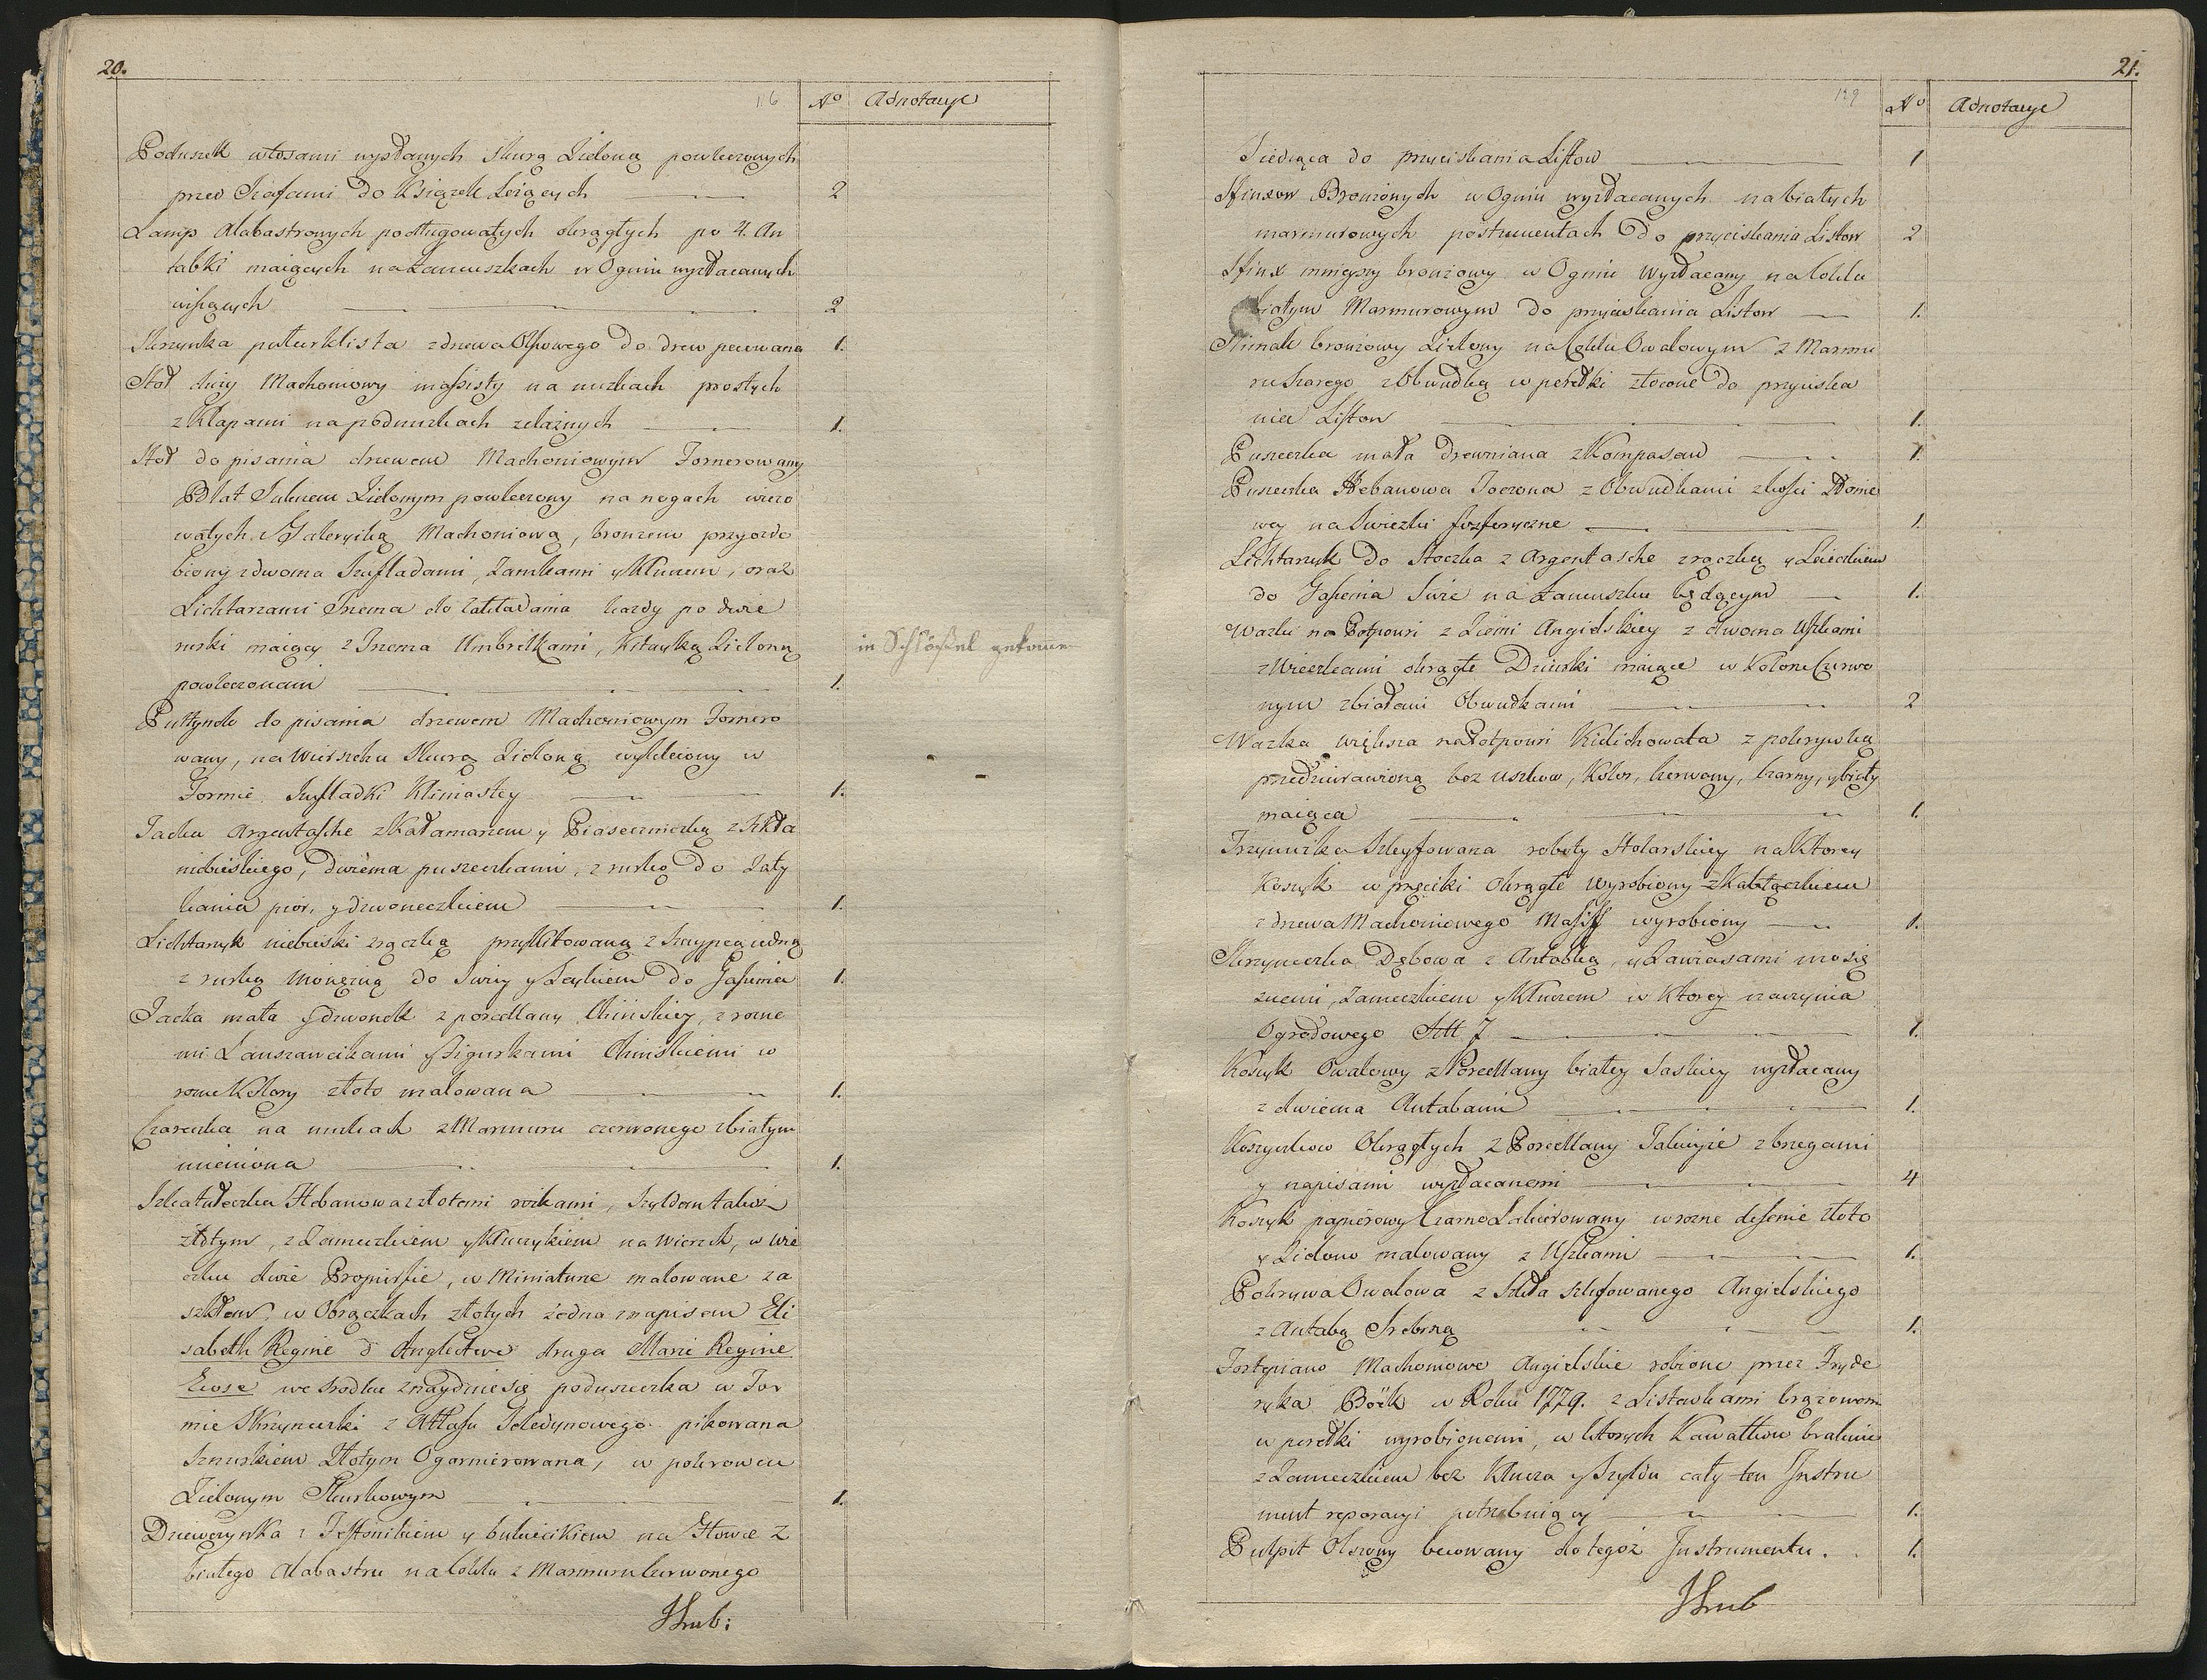 20.
16
No Adnotacye
Poduszek włosami wysłanych skurą Zieloną powleczonych
przed Szafami do Książek Leżących 2
Lamp Alabastrowych podługowatych okrągłych po 4. An
tabki maiących na Łancuszkach w Ogniu wyzłacanych
wiszących 2
Skrzynka puturklista z drzewa Olszowego do drew pecowana 1.
Stoł duży Machoniowy massisty na nuzkach prostych
z Klapami na podnuzkach zelaznych 1.
Stoł do pisania drzewem Machoniowym Fornerowany
Blat Suknem Zielonym powleczony na nogach
watych z Galeryiką Machoniową, bronzem przyozdo
biony z dwoma Szufladami, Zamkami y Kluczem, oraz
Lichtarzami Trzema do Zakładania kazdy po dwie
rurki maiący z Trzema Umbrelkami, Kitayką Zieloną in Schlößel gekommen
powleczonemi 1.
Pultynek do pisania drzewem Machoniowym Fornero
wany, na wierzchu Skurą Zieloną wykleiony w
Formie Szufladki Kliniastey 1.
Tacka Argentasche z Kałamarzem y Piaseczniczką z Szkła
niebieskiego, dwiema puszeczkami, z rurką do Zaty
kania pior, y dzwoneczkiem 1.
Lichtarzyk niebieski z rączką przykitowaną z Szczypcą iedną
z rurką mosiężną do Swicy y Leykiem do Gaszenia 1.
Tacka mała y dzwonek z porcellany Chinskiey, z rozne
mi Lanszawcikami y Figurkami Chinskiemi w
rozne Kolory złoto malowana 1.
Czareczka na nuzkach z Marmuru czerwonego z białym
mieniona 1.
Szkatułeczka Hebanowa z złotemi rożkami, Szyldem takoż
złotym, z Zameczkiem y Kluczykiem na wierzch, w wie
czku dwie Propiersie, w Miniaturze malowane za
szkłem, w Obrączkach złotych iedna z napisem Eli
sabeth Regine d'Angletere druga Marie Regine
Ecose we srodku znayduie się poduszeczka w For
mie Skrzyneczki z Atłasu Seledynowego pikowana
Sznurkiem Złotym Ogarnierowana, w pokrowcu
Zielonym Skurkowym 1.
Dziewczynka z Festonikiem y bukiecikiem na Głowie z
białego Alabastru na Coklu z Marmuru czerwonego
21.
129
No Adnotacye
Siedząca do przyciskania Listow 1
Sfinxow Bronzowych w Ogniu wyzłacanych na białych
marmurowych postumentach do przyciskania Listow 2
Sfinx mnieyszy bronzowy w Ogniu Wyzłacany na Coklu
białym Marmurowym do przyciskania Listow 1.
Slimak bronzowy Zielony na Coklu Owalowym z Marmu
ru Szarego z Obwudką w perełki złocone do przyciska
nia Listow 1.
Puszeczka mała drewniana z Kompasem 1.
Puszeczka Hebanowa Toczona z Obwudkami z kosci Słonio
wey na Swieczki fosforyczne 1.
Lichtarzyk do Stoczka z Argentasche z rączką y Leiczkiem
do Gaszenia Swic na Łancuszku będącym 1.
Wazki na Potpouri z Ziemi Angielskiey z dwoma Uszkami
z Wieczkami okrągłe Dziurki maiące w Kolorze Czerwo
nym z białemi Obwudkami 2
Wazka większa na Potpouri Kielichowata z pokrywką
przedziurawioną bez uszkow, Kolor, Czerwony, Czarny, y biały
maiąca 1.
Trzynożka Szleyfowana roboty Stolarskiey na Ktorey
Koszyk w pręciki Okrągłe wyrobiony z Kabłączkiem
z drzewa Machoniowego Massiff wyrobiony 1.
Skrzyneczka Dębowa z Antabką, y Zawiasami mosię
żnemi, Zameczkiem y Kluczem w Ktorey naczynia
Ogrodowego Sztt 7 1.
Koszyk Owalowy z Porcellany białey Saskiey wyzłacany
z dwiema Antabami 1.
Koszyczkow Okrągłych z Porcellany Takieyże z brzegami
y napisami wyzłacanemi 4
Koszyk papierowy Czarno Lakierowany w rozne desenie złoto
y Zielono malowany z Uszkami 1.
Pokrywa Owalowa z Szkła szlefowanego Angielskiego
z Antabą Srebrną 1.
Fortepiano Machoniowe Angielskie robione przez Fryde
ryka Böck w Roku 1779. z Listewkami brązowem
w perełki wyrobionemi, w ktorych Kawałkow brakuie
z Zameczkiem bez Klucza y Szyldu cały ten Instru
ment reporacyi potrzebuiący 1.
Pulpit Olszowy becowany do tegoż Instrumentu. 1.